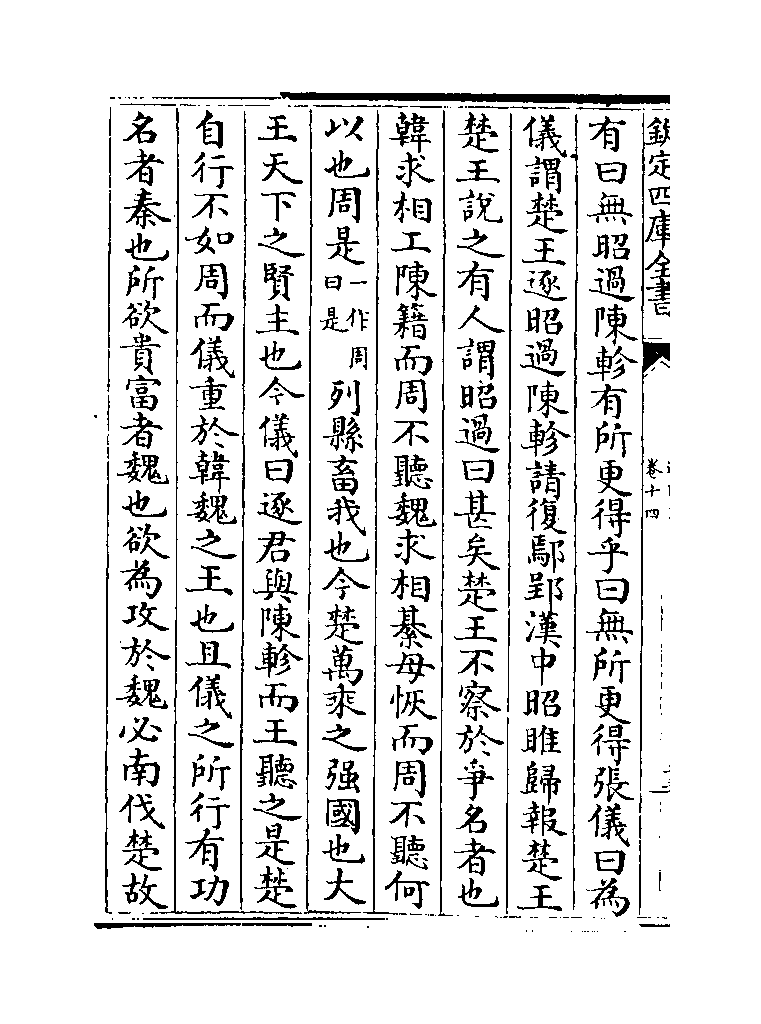 欽定四庫全書
卷十四
有曰無昭過陳軫有所更得乎曰無所更得張儀曰為
儀謂楚王逐昭過陳軫請復鄢郢漢中昭雎歸報楚王
楚王說之有人謂昭過曰甚矣楚王不察於爭名者也
韓求相工陳籍而周不聽魏求相綦母恢而周不聽何
以也周是一作周曰是列縣畜我也今楚萬乘之强國也大
王天下之賢主也今儀曰逐君與陳軫而王聽之是楚
自行不如周而儀重於韓魏之王也且儀之所行有功
名者秦也所欲貴富者魏也欲為攻於魏必南伐楚故